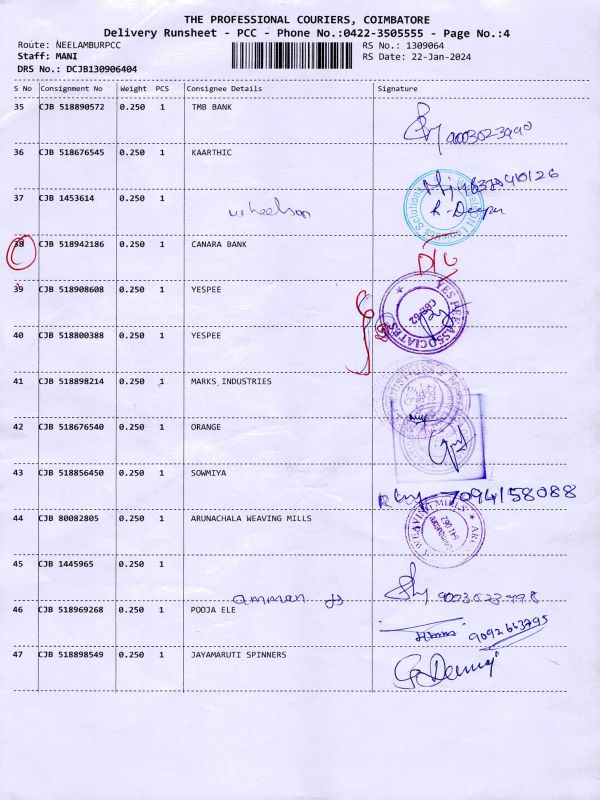 THE PROFESSIONAL COURIERS, COIMBATORE
Delivery Runsheet - PCC - Phone No.:0422-3505555 - Page No.:4
Route: NEELAMBURPCC RS No.: 1309064
Staff: MANI RS Date: 22-Jan-2024
DRS No.: DCJB130906404
S No Consignment No Weight PCS Consignee Details Signature
35 CJB 518890572 0.250 1 TMB BANK
36 CJB 518676545 0.250 1 KAARTHIC
37 CJB 1453614 0.250 1 wheelson
38 CJB 518942186 0.250 1 CANARA BANK D/C
39 CJB 518908608 0.250 1 YESPEE
YESPEE ASSOCIATES
40 CJB 518800388 0.250 1 YESPEE
41 CJB 518898214 0.250 1 MARKS INDUSTRIES
42 CJB 518676540 0.250 1 ORANGE
43 CJB 518856450 0.250 1 SOWMIYA 7094158088
44 CJB 80082805 0.250 1 ARUNACHALA WEAVING MILLS
45 CJB 1445965 0.250 1 amman
46 CJB 518969268 0.250 1 POOJA ELE
47 CJB 518898549 0.250 1 JAYAMARUTI SPINNERS